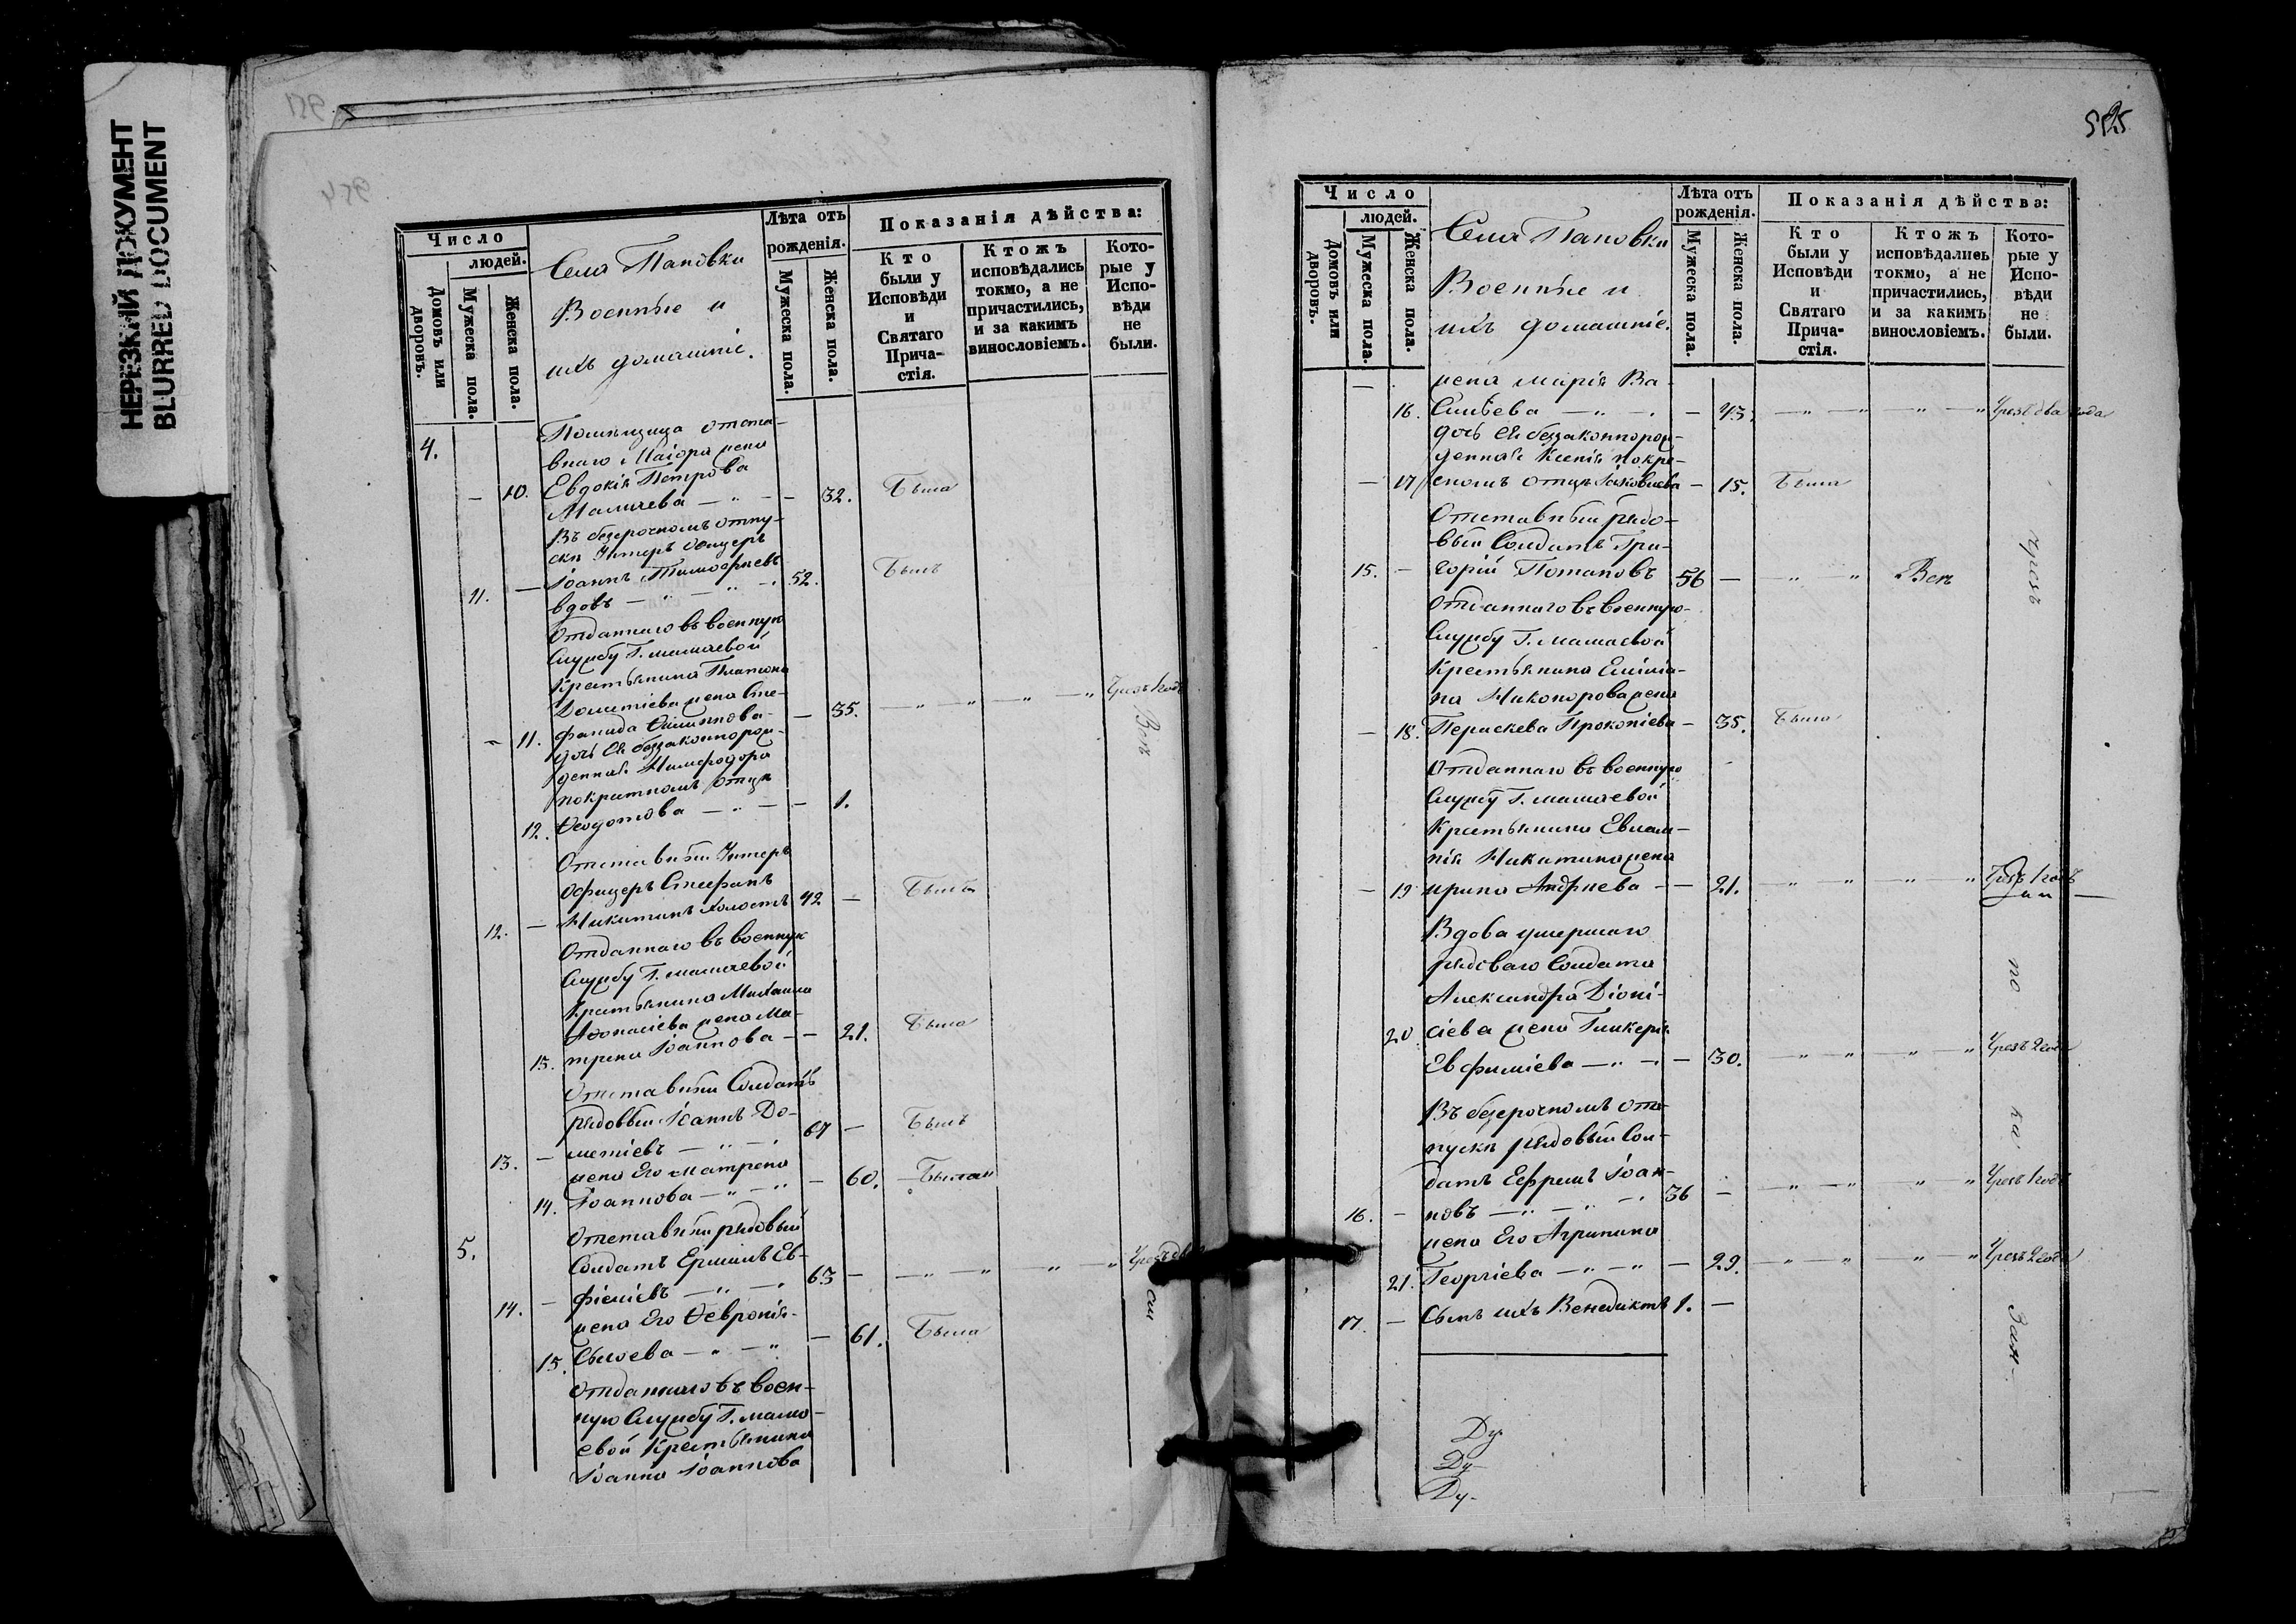 НЕРЕЗКИЙ ДОКУМЕНТ
BLURRED DOCUMENT
Число
людей.
Домовъ или дворовъ.
Мужеска пола.
Женска пола.
Села Пановки
Военные и
ихъ домашніе.
Лѣта отъ
рожденія.
Мужеска пола.
Женска пола.
Показанія дѣйства:
Кто были у Исповѣди и Святаго Прича- стія.
Ктожъ исповѣдались токмо, а не причастились, и за какимъ винословіемъ.
Кото- рые у Испо- вѣди не были.
4.
Помѣщица отста-
внаго Маіора жена
10. Евдокія Петрова
— 32. Была
Въ безсрочномъ отпу-
ску Унтеръ Офицеръ
Іоаннъ Тимофѣевъ 52. Былъ
11. вдовъ
Отданнаго въ военную
Службу Г.
Крестьянина Платона
Дометіева жена Сте-
11. фанида Филиппова — 35. Чрезъ 1 годъ
дочь Ея беззаконнорож-
денная
12. Ѳеодотова — 1.
Отставный Унтеръ
Офицеръ Стефанъ
12. — Никитинъ холостъ 42 — Былъ
Отданнаго въ военную
Службу Г.
Крестьянина Михаила
Аѳонасіева жена Ма-
13. трена Іоаннова — 21. Была
Отставный Солдатъ
рядовый Іоаннъ До-
13. — метіевъ 67 — Былъ
жена Его Матрена
14. Іоаннова — 60. Была
5.
Отставный рядовый
Солдатъ Ермилъ Ев-
14. — фиміевъ 63 —
жена Его Ѳевронія
15. Сысоева — 61. Была
Отданнаго въ воен-
ную Службу Г.
евой Крестьянина
Іоанна Іоаннова
Число
людей.
Домовъ или дворовъ.
Мужеска пола.
Женска пола.
Села Пановки
Военные и
ихъ домашніе.
Лѣта отъ
рожденія.
Мужеска пола.
Женска пола.
Показанія дѣйства:
Кто были у Исповѣди и Святаго Прича- стія.
Ктожъ исповѣдались токмо, а не причастились, и за какимъ винословіемъ.
Кото- рые у Испо- вѣди не были.
жена Марія Ва-
16. Силіева — 43. Чрезъ два года
дочь Ея беззаконнорож-
денная Ксенія по кре-
— 17 сномъ отцѣ Іаковлева — 15. Была
Отставный рядо-
вый Солдатъ Гри-
15. — горій Потаповъ 56 —
Отданнаго въ военную
Службу Г.
Крестьянина Емилиа-
на Никонорова жена
— 18. Параскева Прокопіева — 35. Была
Отданнаго въ военную
Службу Г.
Крестьянина Евлам-
пія Никитина жена
— 19 Ирина Андреева — 21. Чрезъ 1 годъ
Вдова умершаго
рядоваго Солдата
Александра Діони-
20 сіева жена Гликерія
Евфиміева — 30. Чрезъ 2 года
Въ безсрочномъ от-
пуску рядовый Сол-
датъ Ефремъ Іоан-
16. — новъ 36 — Чрезъ 1 годъ
жена Его Агрипина
21. Георгіева — 29. Чрезъ 2 года
17. — Сынъ ихъ Венедиктъ 1. —
чрезъ
по
ка
Зам-
Ду-
Ду-
Ду-